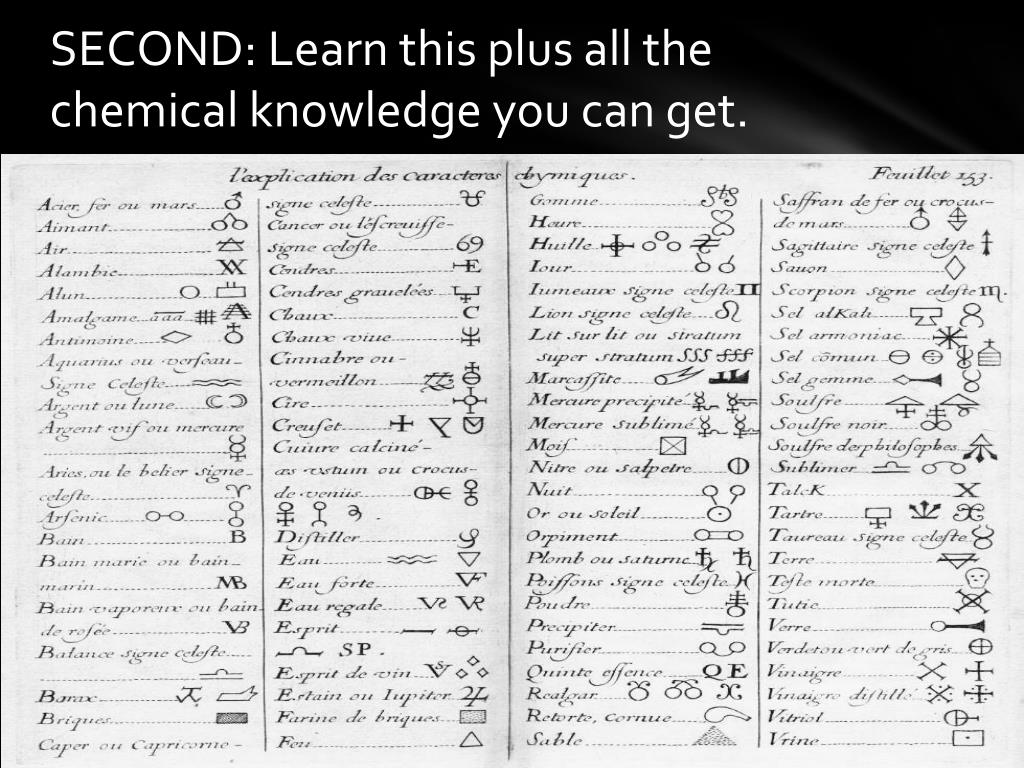 SECOND: Learn this plus all the
chemical knowledge you can get.
l'explication des caracteres chymiques.
Feuillet 153.
Acier, fer ou mars
Aimant
Air
Alambic
Alun
Amalgame aaa
Antimoine
Aquarius ou verseau
Signe Celeste
Argent ou lune
Argent vif ou mercure
Aries, ou le belier signe
celeste
Arsenic
Bain B
Bain marie ou bain
marin MB
Bain vaporeux ou bain
de rosée VB
Balance signe celeste
Borax
Briques
Caper ou Capricorne
signe celeste
Cancer ou l'escreuisse
signe celeste 69
Cendres E
Cendres grauelées
Chaux C
Chaux viue
Cinnabre ou
vermeillon
Cire
Creuset
Cuiure calciné
æs ustum ou crocus
de venus
Distiller
Eau
Eau forte
Eau regale
Esprit
SP.
Esprit de vin
Estain ou Iupiter
Farine de briques
Feu
Gomme
Heure
Huille
Iour
Iumeaux signe celeste
Lion signe celeste
Lit sur lit ou stratum
super stratum SSS
Marcassite
Mercure precipité
Mercure sublimé
Mois
Nitre ou salpetre
Nuit
Or ou soleil
Orpiment
Plomb ou saturne
Poissons signe celeste
Poudre
Precipiter
Purifier
Quinte essence QE
Realgar
Retorte, cornue
Sable
Saffran de fer ou crocus
de mars
Sagittaire signe celeste
Sauon
Scorpion signe celeste
Sel alkali
Sel armoniac
Sel comun
Sel gemme
Soulfre
Soulfre noir
Soulfre des philosophes
Sublimer
Talck X
Tartre
Taureau signe celeste
Terre
Teste morte
Tutie
Verre
Verdet ou vert de gris
Vinaigre
Vinaigre distillé
Vitriol
Vrine